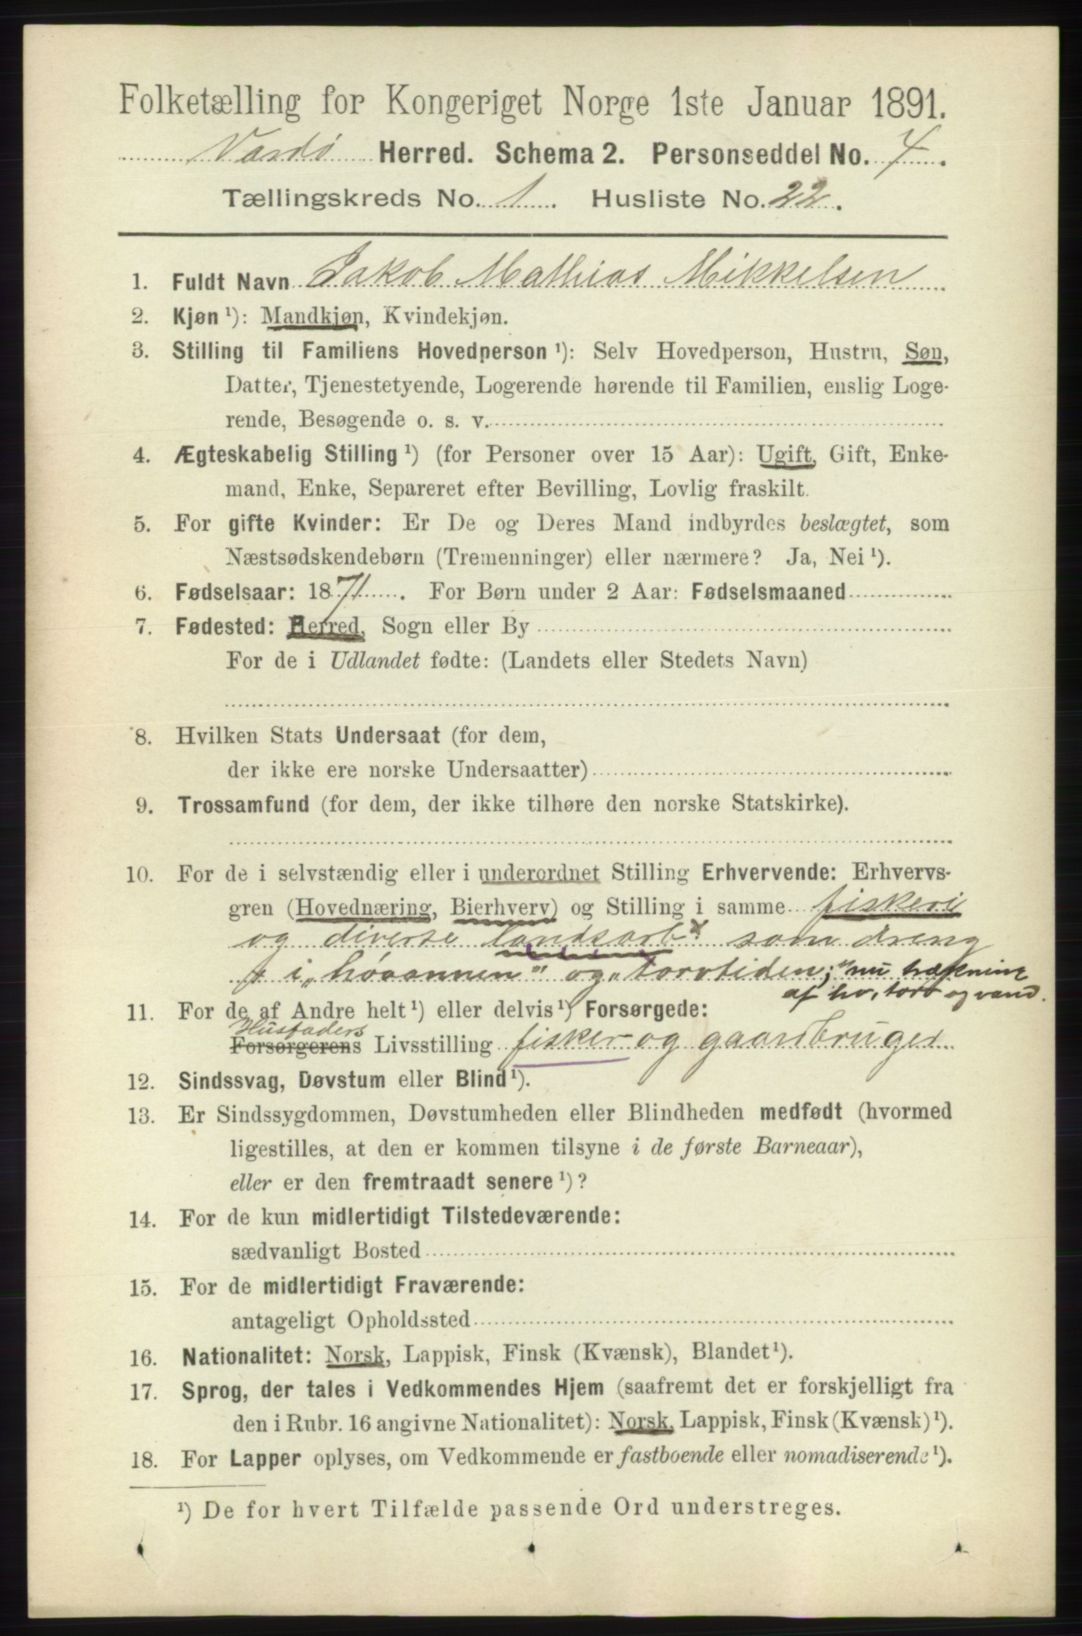 Folketælling for Kongeriget Norge 1ste Januar 1891.
Vardö Herred. Schema 2. Personseddel No. 4.
Tællingskreds No. 1. Husliste No. 22.
1. Fuldt Navn Jakob Mathias Mikkelsen
2. Kjøn ¹): Mandkjøn, Kvindekjøn.
3. Stilling til Familiens Hovedperson ¹): Selv Hovedperson, Hustru, Søn,
Datter, Tjenestetyende, Logerende hørende til Familien, enslig Loge-
rende, Besøgende o. s. v.
4. Ægteskabelig Stilling ¹) (for Personer over 15 Aar): Ugift, Gift, Enke-
mand, Enke, Separeret efter Bevilling, Lovlig fraskilt.
5. For gifte Kvinder: Er De og Deres Mand indbyrdes beslægtet, som
Næstsødskendebørn (Tremenninger) eller nærmere? Ja, Nei ¹).
6. Fødselsaar: 1871. For Børn under 2 Aar: Fødselsmaaned
7. Fødested: Herred, Sogn eller By
For de i Udlandet fødte: (Landets eller Stedets Navn)
8. Hvilken Stats Undersaat (for dem,
der ikke ere norske Undersaatter)
9. Trossamfund (for dem, der ikke tilhøre den norske Statskirke).
10. For de i selvstændig eller i underordnet Stilling Erhvervende: Erhvervs-
gren (Hovednæring, Bierhverv) og Stilling i samme fiskeri
og diverse landsarb x som dreng
x i „höaannen" og „torvtiden;" nu
af hö, torv og vand.
11. For de af Andre helt ¹) eller delvis ¹) Forsørgede:
Husfaders
Forsørgerens Livsstilling fisker og gaardbruger
12. Sindssvag, Døvstum eller Blind ¹).
13. Er Sindssygdommen, Døvstumheden eller Blindheden medfødt (hvormed
ligestilles, at den er kommen tilsyne i de første Barneaar),
eller er den fremtraadt senere ¹)?
14. For de kun midlertidigt Tilstedeværende:
sædvanligt Bosted
15. For de midlertidigt Fraværende:
antageligt Opholdssted
16. Nationalitet: Norsk, Lappisk, Finsk (Kvænsk), Blandet ¹).
17. Sprog, der tales i Vedkommendes Hjem (saafremt det er forskjelligt fra
den i Rubr. 16 angivne Nationalitet): Norsk, Lappisk, Finsk (Kvænsk) ¹).
18. For Lapper oplyses, om Vedkommende er fastboende eller nomadiserende ¹).
¹) De for hvert Tilfælde passende Ord understreges.